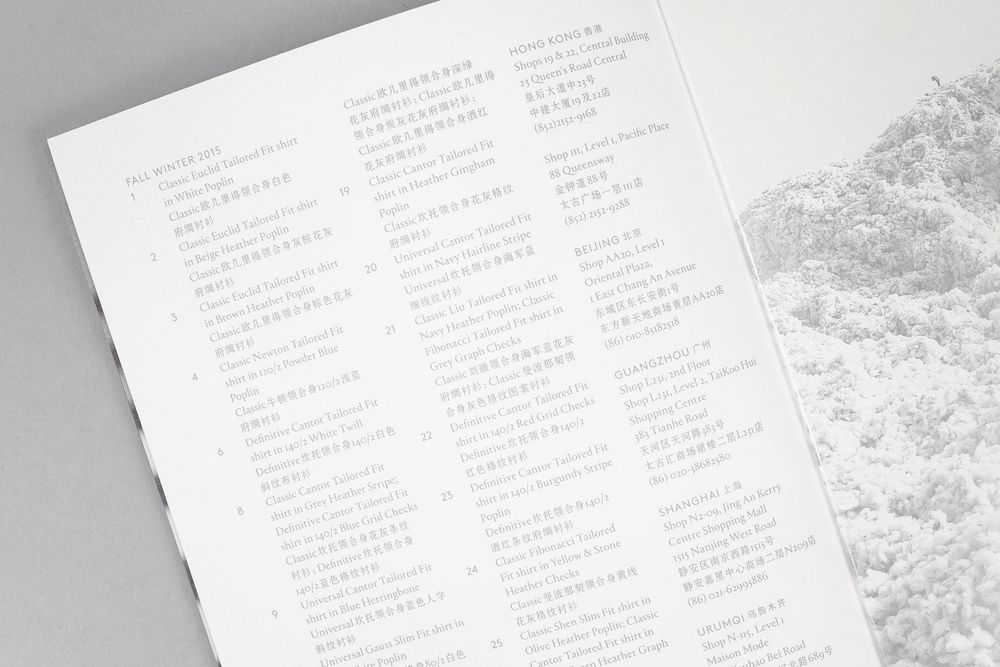 FALL WINTER 2015
1 Classic Euclid Tailored Fit shirt
in White Poplin
Classic欧几里得领合身白色
府绸衬衫
2 Classic Euclid Tailored Fit shirt
in Beige Heather Poplin
Classic欧几里得领合身灰棕花灰
府绸衬衫
3 Classic Euclid Tailored Fit shirt
in Brown Heather Poplin
Classic欧几里得领合身棕色花灰
府绸衬衫
4 Classic Newton Tailored Fit
shirt in 120/2 Powder Blue
Poplin
Classic牛顿领合身120/2浅蓝
府绸衬衫
6 Definitive Cantor Tailored Fit
shirt in 140/2 White Twill
Definitive坎托领合身140/2白色
斜纹布衬衫
8 Classic Cantor Tailored Fit
shirt in Grey Heather Stripe;
Definitive Cantor Tailored Fit
shirt in 140/2 Blue Grid Checks
Classic坎托领合身花灰条纹
衬衫; Definitive坎托领合身
140/2蓝色格纹衬衫
9 Universal Cantor Tailored Fit
shirt in Blue Herringbone
Universal坎托领合身蓝色人字
斜纹衬衫
Universal Gauss Slim Fit shirt in
身80/2白色
Classic欧几里得领合身深绿
花灰府绸衬衫; Classic欧几里得
领合身炭灰花灰府绸衬衫;
Classic欧几里得领合身酒红
花灰府绸衬衫
19 Classic Cantor Tailored Fit
shirt in Heather Gingham
Poplin
Classic坎托领合身花灰格纹
府绸衬衫
20 Universal Cantor Tailored Fit
shirt in Navy Hairline Stripe
Universal坎托领合身海军蓝
细线纹衬衫
21 Classic Liu Tailored Fit shirt in
Navy Heather Poplin; Classic
Fibonacci Tailored Fit shirt in
Grey Graph Checks
Classic刘徽领合身海军蓝花灰
府绸衬衫; Classic斐波那契领
合身灰色格纹图案衬衫
22 Definitive Cantor Tailored Fit
shirt in 140/2 Red Grid Checks
Definitive坎托领合身140/2
红色格纹衬衫
23 Definitive Cantor Tailored Fit
shirt in 140/2 Burgundy Stripe
Poplin
Definitive坎托领合身140/2
酒红条纹府绸衬衫
24 Classic Fibonacci Tailored
Fit shirt in Yellow & Stone
Heather Checks
Classic斐波那契领合身黄线
花灰格纹衬衫
25 Classic Shen Slim Fit shirt in
Olive Heather Poplin; Classic
Cantor Tailored Fit shirt in
Green Heather Graph
HONG KONG 香港
Shops 19 & 22, Central Building
23 Queen's Road Central
皇后大道中23号
中建大厦19及22店
(852)2152-9168
Shop 111, Level 1, Pacific Place
88 Queensway
金钟道88号
太古广场一层111店
(852) 2152-9288
BEIJING 北京
Shop AA20, Level 1
Oriental Plaza,
1 East Chang An Avenue
东城区东长安街1号
东方新天地商场首层AA20店
(86) 010-85182518
GUANGZHOU 广州
Shop L231, 2nd Floor
Shop L231, Level 2, TaiKoo Hui
Shopping Centre
383 Tianhe Road
天河区天河路383号
太古汇商场建楼二层L231店
(86) 020-38682580
SHANGHAI 上海
Shop N2-09, Jing An Kerry
Centre Shopping Mall
1515 Nanjing West Road
静安区南京西路1515号
静安嘉里中心商场二层N209店
(86) 021-62995886
URUMQI 乌鲁木齐
Shop N-115, Level 1
Maison Mode
Bei Road
北路689号